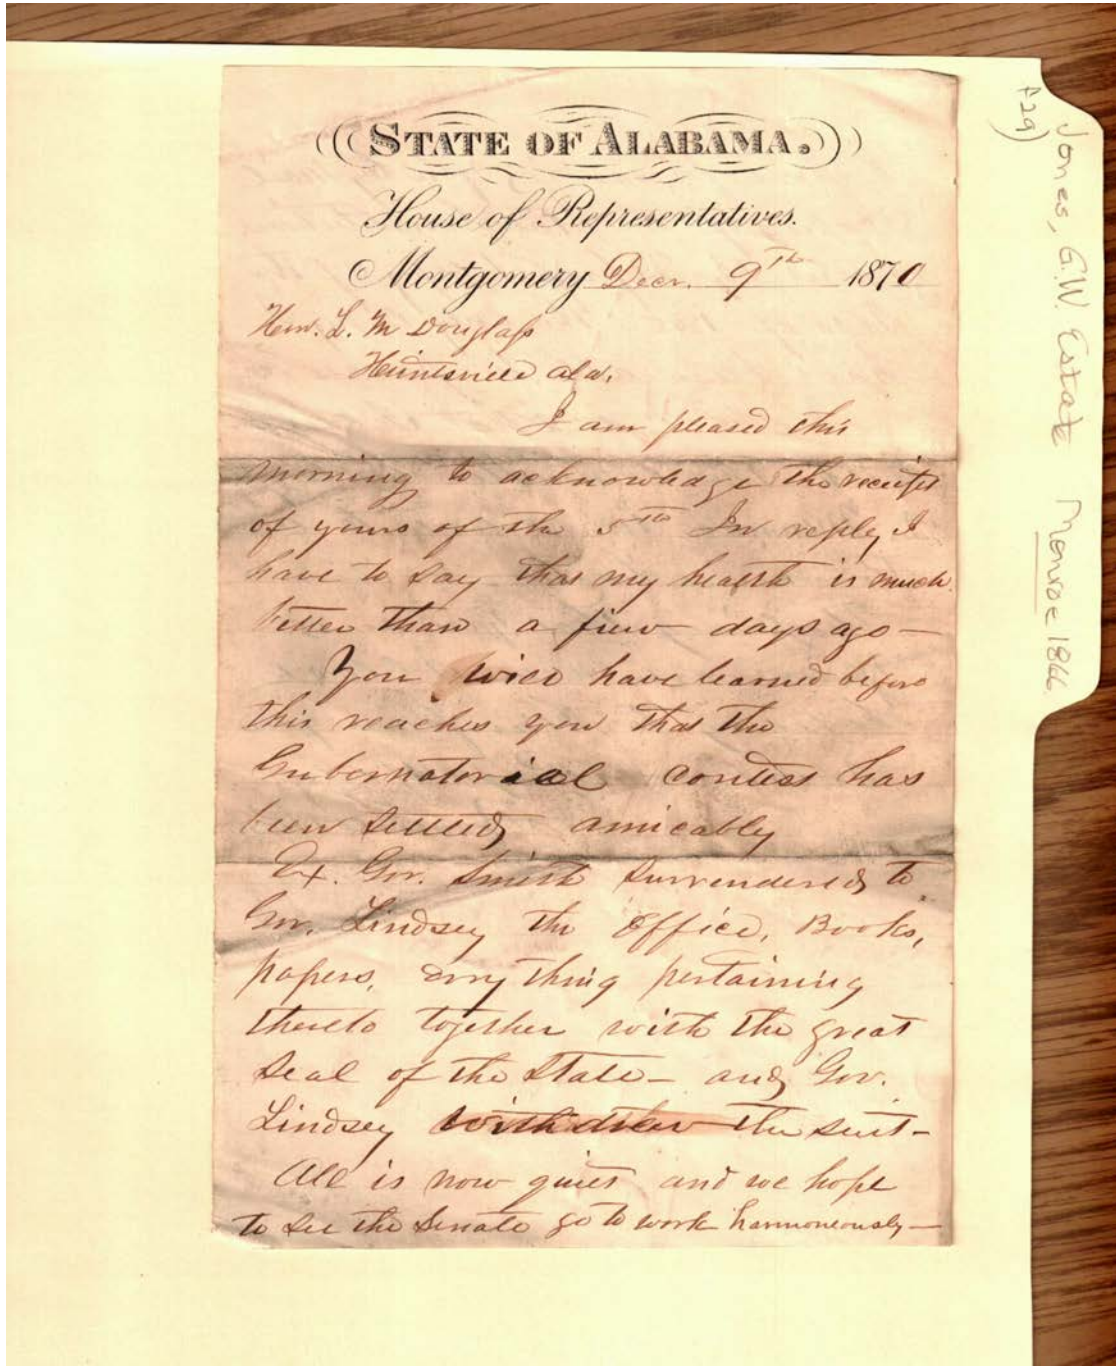 STATE OF ALABAMA.
House of Representatives.
Montgomery Decr. 9th 1870
Hon. L. M Douglass
Huntsville Ala.
I am pleased this
morning to acknowledge the receipt
of yours of the 5th In reply, I
have to say that my health is much
better than a few days ago —
You will have learned before
this reaches you that the
Gubernatorial contest has
been settled amicably
Ex. Gov. Smith surrendered to
Gov. Lindsey the Office, Books,
papers, every thing pertaining
thereto together with the great
seal of the State — and Gov.
Lindsey withdrew the suit —
All is now quiet and we hope
to see the Senate go to work harmoneously —
Jones, G.W. Estate Monroe 1866
F29)